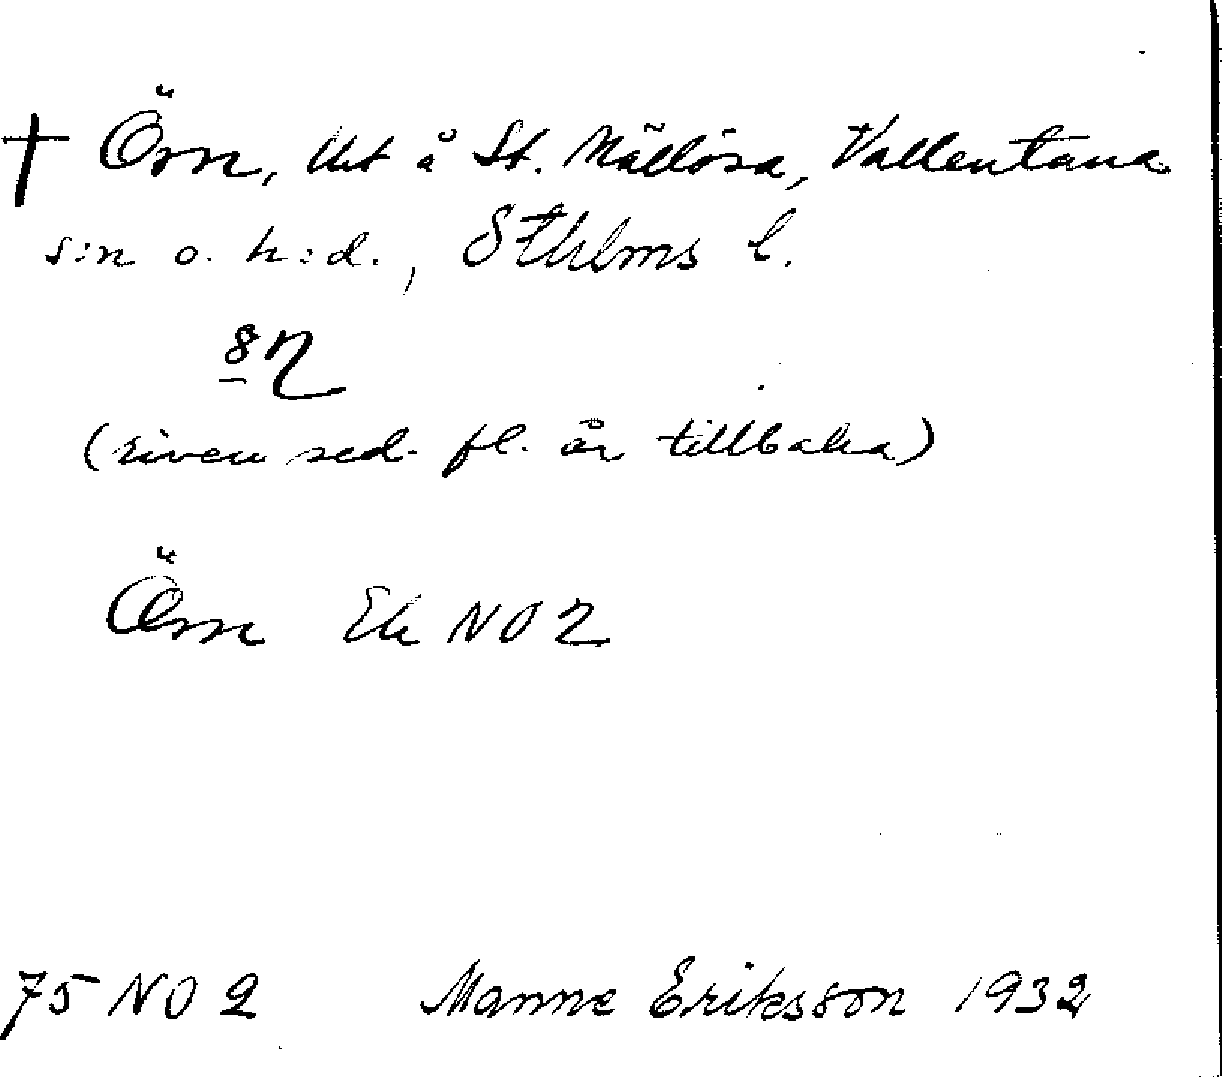 † Örn, lht å St. Mällösa, Vallentuna
s:n o. h:d., Sthlms l.
(riven sed. fl. år tillbaka)
Örn Ek NO 2
75 NO 2 Manne Eriksson 1932